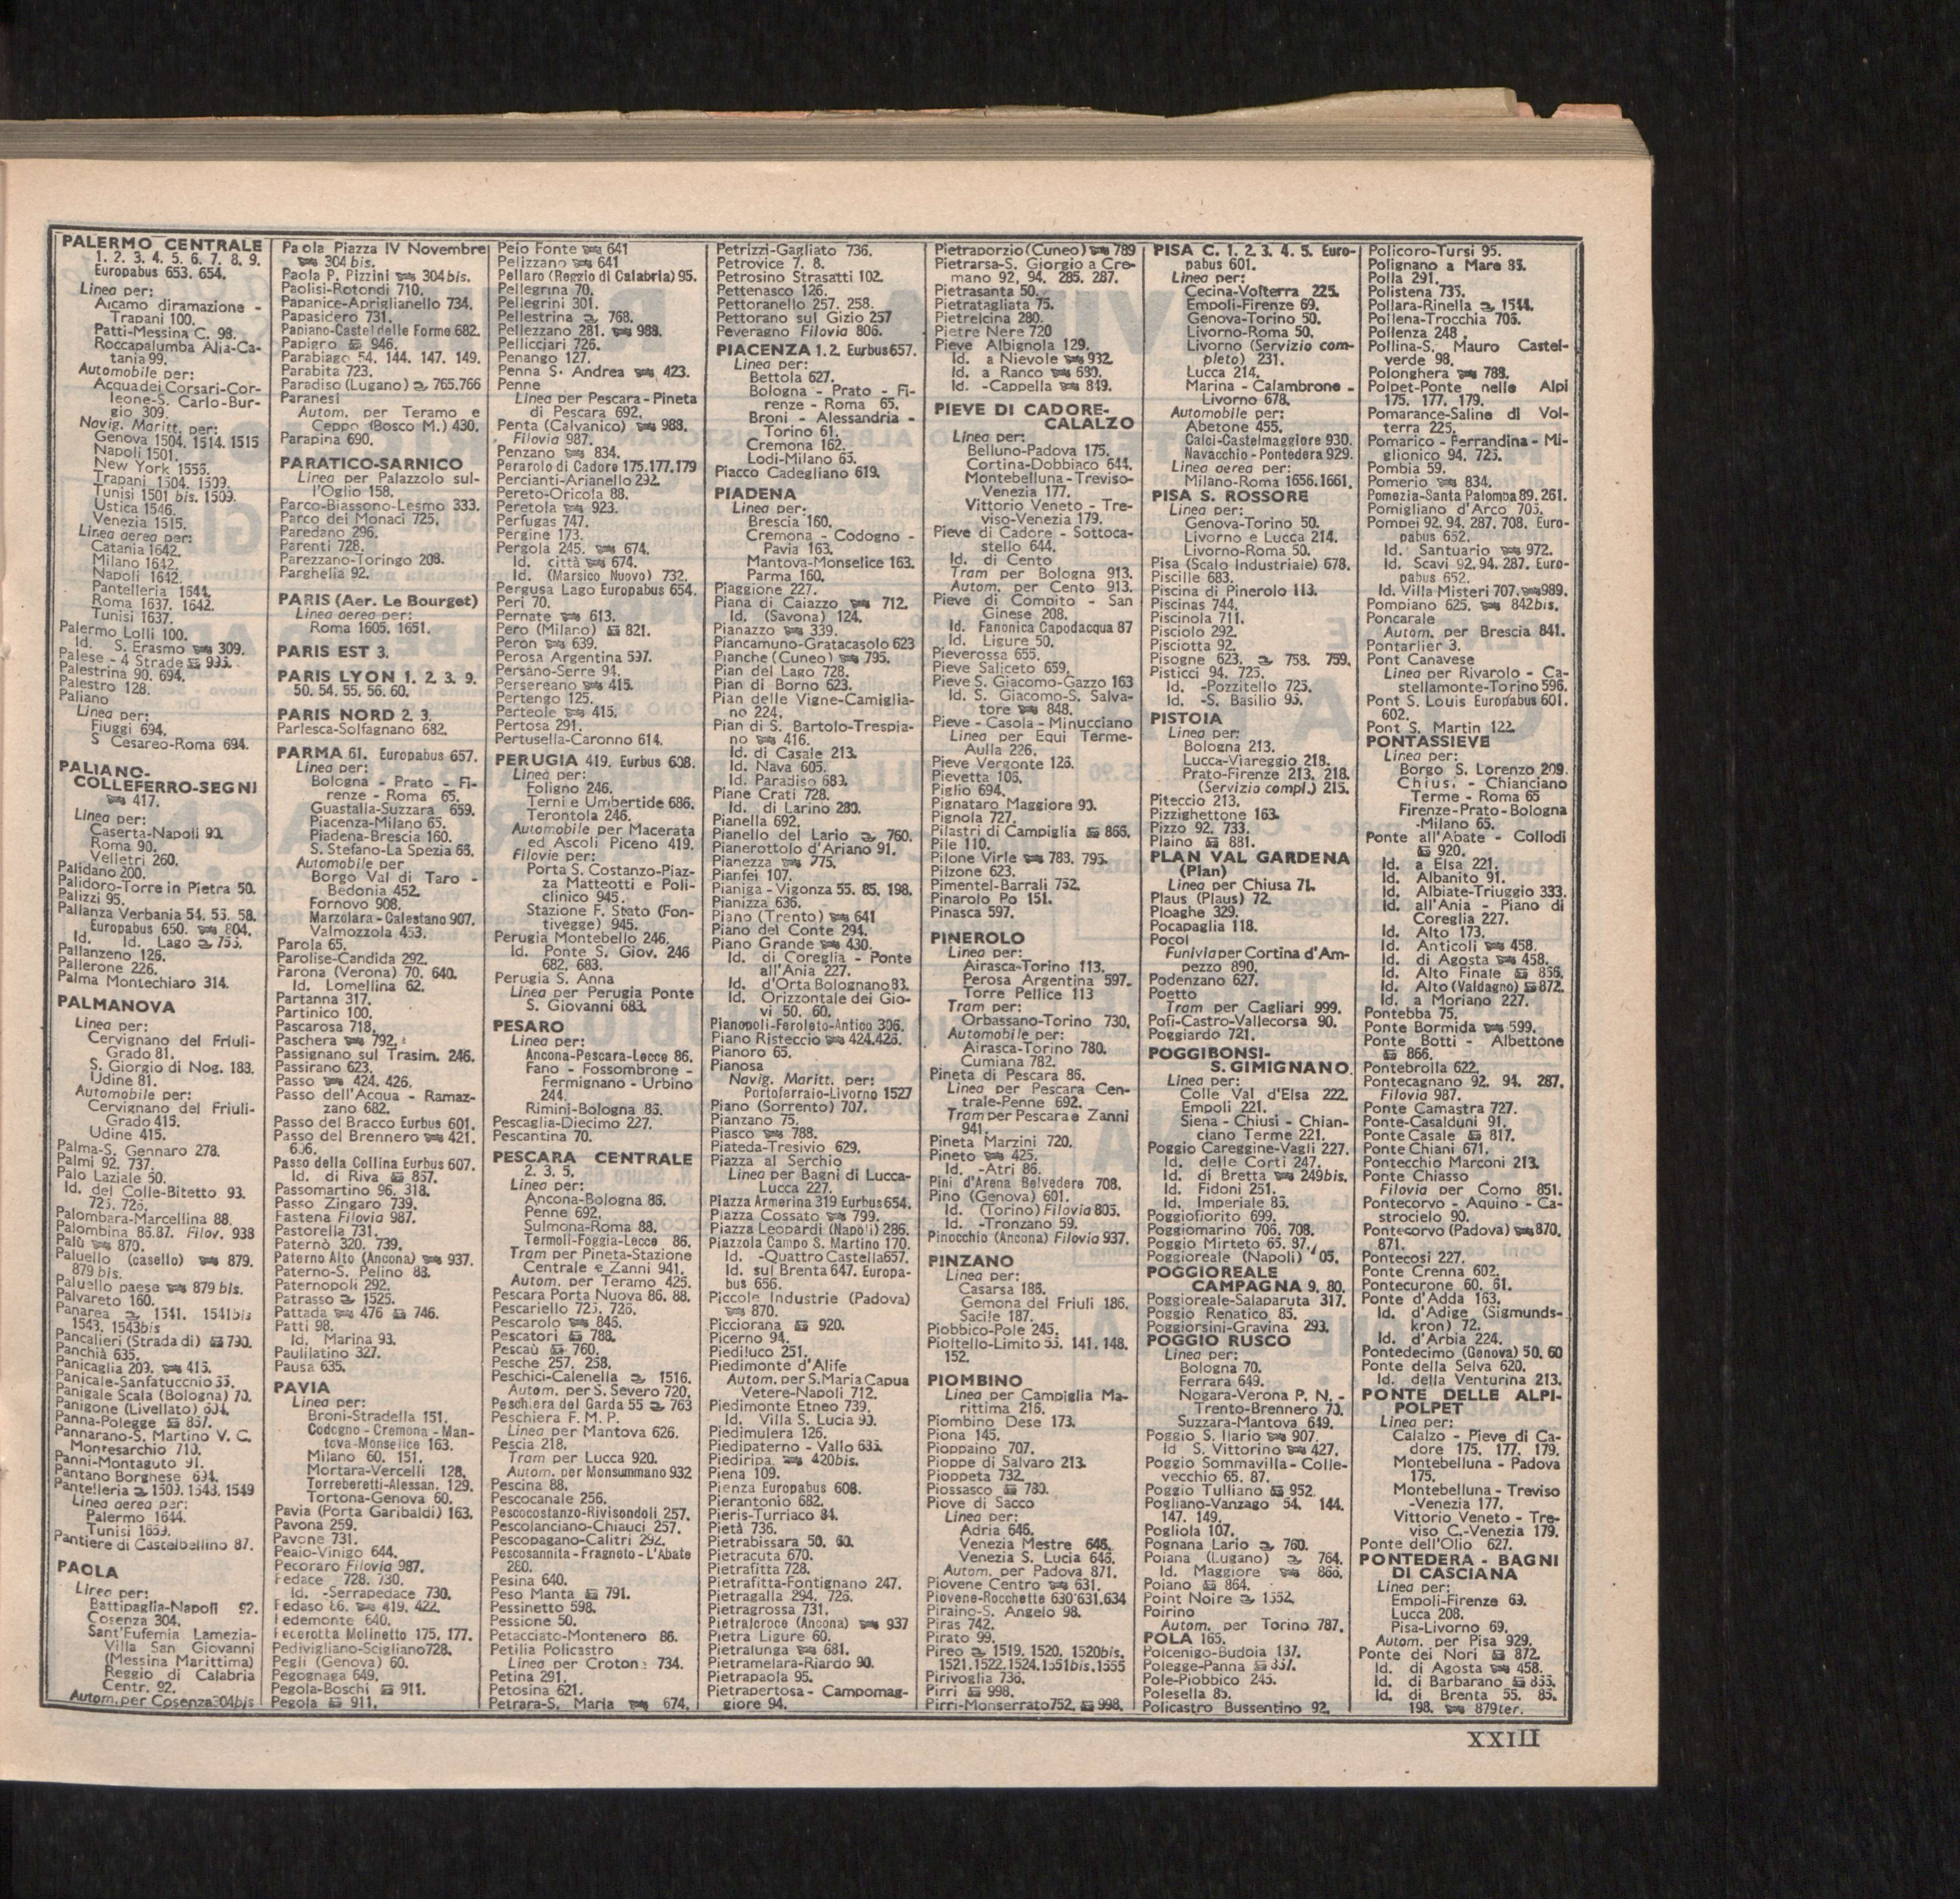 PALERMO CENTRALE
1. 2. 3. 4. 5. 6. 7. 8. 9.
Europabus 653. 654.
Linea per:
Alcamo diramazione -
Trapani 100.
Patti-Messina C. 98.
Roccapalumba Alia-Ca-
tania 99.
Automobile per:
Acqua dei Corsari-Cor-
leone-S. Carlo-Bur-
gio 309.
Navig. Maritt. per:
Genova 1504. 1514. 1515
Napoli 1501.
New York 1555.
Trapani 1504. 1509.
Tunisi 1501 bis. 1509.
Ustica 1546.
Venezia 1515.
Linea aerea per:
Catania 1642.
Milano 1642.
Napoli 1642.
Pantelleria 1644.
Roma 1637. 1642.
Tunisi 1637.
Palermo Lolli 100.
Id. S. Erasmo 309.
Palese - 4 Strade 995.
Palestrina 90. 694.
Palestro 128.
Paliano
Linea per:
Fiuggi 694.
S Cesareo-Roma 694.
PALIANO-
COLLEFERRO-SEGNI
417.
Linea per:
Caserta-Napoli 90.
Roma 90.
Velletri 260.
Palidano 200.
Palidoro-Torre in Pietra 50.
Palizzi 95.
Pallanza Verbania 54. 55. 58.
Europabus 650. 804.
Id. Id. Lago 755.
Pallanzeno 126.
Pallerone 226.
Palma Montechiaro 314.
PALMANOVA
Linea per:
Cervignano del Friuli-
Grado 81.
S. Giorgio di Nog. 183.
Udine 81.
Automobile per:
Cervignano del Friuli-
Grado 415.
Udine 415.
Palma-S. Gennaro 278.
Palmi 92. 737.
Palo Laziale 50.
Id. del Colle-Bitetto 93.
725. 726.
Palombara-Marcellina 88.
Palombina 86.87. Filov. 938
Palù 870.
Paluello (casello) 879.
879 bis.
Paluello paese 879 bis.
Palvareto 160.
Panarea 1541. 1541bis
1543. 1543bis
Pancalieri (Strada di) 790.
Panchià 635.
Panicaglia 209. 416.
Panicale-Sanfatucchio 65.
Panigale Scala (Bologna) 70.
Panigone (Livellato) 694.
Panna-Polegge 867.
Pannarano-S. Martino V. C.
Montesarchio 710.
Panni-Montaguto 91.
Pantano Borghese 694.
Pantelleria 1509. 1548. 1549
Linea aerea per:
Palermo 1644.
Tunisi 1659.
Pantiere di Castelbellino 87.
PAOLA
Linea per:
Battipaglia-Napoli 92.
Cosenza 304.
Sant'Eufemia Lamezia-
Villa San Giovanni
(Messina Marittima)
Reggio di Calabria
Centr. 92.
Autom. per Cosenza 304bis
Paola Piazza IV Novembre
304 bis.
Paola P. Pizzini 304bis.
Paolisi-Rotondi 710.
Papanice-Apriglianello 734.
Papasidero 731.
Papiano-Castel delle Forme 682.
Papigro 946.
Parabiago 54. 144. 147. 149.
Parabita 723.
Paradiso (Lugano) 765.766
Paranesi
Autom. per Teramo e
Ceppo (Bosco M.) 430.
Parapina 690.
PARATICO-SARNICO
Linea per Palazzolo sul-
l'Oglio 158.
Parco-Biassono-Lesmo 333.
Parco dei Monaci 725.
Paredano 296.
Parenti 728.
Parezzano-Toringo 208.
Parghelia 92.
PARIS (Aer. Le Bourget)
Linea aerea per:
Roma 1605. 1651.
PARIS EST 3.
PARIS LYON 1. 2. 3. 9.
50. 54. 55. 56. 60.
PARIS NORD 2. 3.
Parlesca-Solfagnano 682.
PARMA 61. Europabus 657.
Linea per:
Bologna - Prato - Fi-
renze - Roma 65.
Guastalla-Suzzara 659.
Piacenza-Milano 65.
Piadena-Brescia 160.
S. Stefano-La Spezia 68.
Automobile per
Borgo Val di Taro -
Bedonia 452.
Fornovo 908.
Marzolara - Calestano 907.
Valmozzola 453.
Parola 65.
Parolise-Candida 292.
Parona (Verona) 70. 640.
Id. Lomellina 62.
Partanna 317.
Partinico 100.
Pascarosa 718.
Paschera 792.
Passignano sul Trasim. 246.
Passirano 623.
Passo 424. 426.
Passo dell'Acqua - Ramaz-
zano 682.
Passo del Bracco Eurbus 601.
Passo del Brennero 421.
656.
Passo della Collina Eurbus 607.
Id. di Riva 867.
Passomartino 96. 318.
Passo Zingaro 739.
Pastena Filovia 987.
Pastorella 731.
Paternò 320. 739.
Paterno Alto (Ancona) 937.
Paterno-S. Pelino 88.
Paternopoli 292.
Patrasso 1525.
Pattada 476 746.
Patti 98.
Id. Marina 93.
Paulilatino 327.
Pausa 635.
PAVIA
Linea per:
Broni-Stradella 151.
Codogno - Cremona - Man-
tova-Monselice 163.
Milano 60. 151.
Mortara-Vercelli 128.
Torreberetti-Alessan. 129.
Tortona-Genova 60.
Pavia (Porta Garibaldi) 163.
Pavona 259.
Pavone 731.
Peaio-Vinigo 644.
Pecoraro Filovia 987.
Pedace 728. 730.
Id. -Serrapedace 730.
Pedaso 86. 419. 422.
Pedemonte 640.
Pecerotta Molinetto 175. 177.
Pedivigliano-Scigliano 728.
Pegli (Genova) 60.
Pegognaga 649.
Pegola-Boschi 911.
Pegola 911.
Peio Fonte 641
Pelizzano 641
Pellaro (Reggio di Calabria) 95.
Pellegrina 70.
Pellegrini 301.
Pellestrina 768.
Pellezzano 281. 988.
Pellicciari 726.
Penango 127.
Penna S. Andrea 423.
Penne
Linea per Pescara - Pineta
di Pescara 692.
Penta (Calvanico) 988.
Filovia 987.
Penzano 834.
Perarolo di Cadore 175.177.179
Percianti-Arianello 292.
Pereto-Oricola 88.
Peretola 923.
Perfugas 747.
Pergine 173.
Pergola 245. 674.
Id. città 674.
Id. (Marsico Nuovo) 732.
Pergusa Lago Europabus 654.
Peri 70.
Pernate 613.
Pero (Milano) 821.
Peron 639.
Perosa Argentina 597.
Persano-Serre 94.
Persereano 415.
Pertengo 125.
Perteole 415.
Pertosa 291.
Pertusella-Caronno 614.
PERUGIA 419. Eurbus 608.
Linea per:
Foligno 246.
Terni e Umbertide 686.
Terontola 246.
Automobile per Macerata
ed Ascoli Piceno 419.
Filovie per:
Porta S. Costanzo-Piaz-
za Matteotti e Poli-
clinico 945.
Stazione F. Stato (Fon-
tivegge) 945.
Perugia Montebello 246.
Id. Ponte S. Giov. 246
682. 683.
Perugia S. Anna
Linea per Perugia Ponte
S. Giovanni 683.
PESARO
Linea per:
Ancona-Pescara-Lecce 86.
Fano - Fossombrone -
Fermignano - Urbino
244.
Rimini-Bologna 86.
Pescaglia-Diecimo 227.
Pescantina 70.
PESCARA CENTRALE
2. 3. 5.
Linea per:
Ancona-Bologna 86.
Penne 692.
Sulmona-Roma 88.
Termoli-Foggia-Lecce 86.
Tram per Pineta-Stazione
Centrale e Zanni 941.
Autom. per Teramo 425.
Pescara Porta Nuova 86. 88.
Pescariello 725. 726.
Pescarolo 846.
Pescatori 788.
Pescaù 760.
Pesche 257. 258.
Peschici-Calenella 1516.
Autom. per S. Severo 720.
Peschiera del Garda 55 763
Peschiera F. M. P.
Linea per Mantova 626.
Pescia 218.
Tram per Lucca 920.
Autom. per Monsummano 932
Pescina 88.
Pescocanale 256.
Pescocostanzo-Rivisondoli 257.
Pescolanciano-Chiauci 257.
Pescopagano-Calitri 292.
Pescosannita - Fragneto - L'Abate
280.
Pesina 640.
Peso Manta 791.
Pessinetto 598.
Pessione 50.
Petacciato-Montenero 86.
Petilia Policastro
Linea per Crotone 734.
Petina 291.
Petosina 621.
Petrara-S. Maria 674.
Petrizzi-Gagliato 736.
Petrovice 7. 8.
Petrosino Strasatti 102.
Pettenasco 126.
Pettoranello 257. 258.
Pettorano sul Gizio 257
Peveragno Filovia 806.
PIACENZA 1.2. Eurbus 657.
Linea per:
Bettola 627.
Bologna - Prato - Fi-
renze - Roma 65.
Broni - Alessandria -
Torino 61.
Cremona 162.
Lodi-Milano 65.
Piacco Cadegliano 619.
PIADENA
Linea per:
Brescia 160.
Cremona - Codogno -
Pavia 163.
Mantova-Monselice 163.
Parma 160.
Piaggione 227.
Piana di Caiazzo 712.
Id. (Savona) 124.
Pianazzo 339.
Piancamuno-Gratacasolo 623
Pianche (Cuneo) 795.
Pian del Lago 728.
Pian di Borno 623.
Pian delle Vigne-Camiglia-
no 224.
Pian di S. Bartolo-Trespia-
no 416.
Id. di Casale 213.
Id. Nava 605.
Id. Paradiso 689.
Piane Crati 728.
Id. di Larino 280.
Pianella 692.
Pianello del Lario 760.
Pianerottolo d'Ariano 91.
Pianezza 775.
Pianfei 107.
Pianiga - Vigonza 55. 85. 198.
Pianizza 636.
Piano (Trento) 641
Piano del Conte 294.
Piano Grande 430.
Id. di Coreglia - Ponte
all'Ania 227.
Id. d'Orta Bolognano 83.
Id. Orizzontale dei Gio-
vi 50. 60.
Pianopoli-Feroleto-Antico 306.
Piano Risteccio 424.426.
Pianoro 65.
Pianosa
Navig. Maritt. per:
Portoferraio-Livorno 1527
Piano (Sorrento) 707.
Pianzano 75.
Piasco 788.
Piateda-Tresivio 629.
Piazza al Serchio
Linea per Bagni di Lucca-
Lucca 227.
Piazza Armerina 319 Eurbus 654.
Piazza Cossato 799.
Piazza Leopardi (Napoli) 286.
Piazzola Campo S. Martino 170.
Id. -Quattro Castella 657.
Id. sul Brenta 647. Europa-
bus 656.
Piccole Industrie (Padova)
870.
Picciorana 920.
Picerno 94.
Piediluco 251.
Piedimonte d'Alife
Autom. per S. Maria Capua
Vetere-Napoli 712.
Piedimonte Etneo 739.
Id. Villa S. Lucia 90.
Piedimulera 126.
Piedipaterno - Vallo 635.
Piediripa 420bis.
Piena 109.
Pienza Europabus 608.
Pierantonio 682.
Pieris-Turriaco 84.
Pietà 736.
Pietrabissara 50. 60.
Pietracuta 670.
Pietrafitta 728.
Pietrafitta-Fontignano 247.
Pietragalla 294. 726.
Pietragrossa 731.
Pietralcroce (Ancona) 937
Pietra Ligure 60.
Pietralunga 681.
Pietramelara-Riardo 90.
Pietrapaola 95.
Pietrapertosa - Campomag-
giore 94.
Pietraporzio (Cuneo) 789
Pietrarsa-S. Giorgio a Cre-
mano 92. 94. 285. 287.
Pietrasanta 50.
Pietratagliata 75.
Pietrelcina 280.
Pietre Nere 720
Pieve Albignola 129.
Id. a Nievole 932
Id. a Ranco 680.
Id. -Cappella 849.
PIEVE DI CADORE-
CALALZO
Linea per:
Belluno-Padova 175.
Cortina-Dobbiaco 644.
Montebelluna-Treviso-
Venezia 177.
Vittorio Veneto - Tre-
viso-Venezia 179.
Pieve di Cadore - Sottoca-
stello 644.
Id. di Cento
Tram per Bologna 913.
Autom. per Cento 913.
Pieve di Compito - San
Ginese 208.
Id. Fanonica Capodacqua 87
Id. Ligure 50.
Pieverossa 655.
Pieve Saliceto 659.
Pieve S. Giacomo-Gazzo 163
Id. S. Giacomo-S. Salva-
tore 848.
Pieve - Casola - Minucciano
Linea per Equi Terme-
Aulla 226.
Pieve Vergonte 126.
Pievetta 106.
Piglio 694.
Pignataro Maggiore 90.
Pignola 727.
Pilastri di Campiglia 866.
Pile 110.
Pilone Virle 783. 795.
Pilzone 623.
Pimentel-Barrali 752.
Pinarolo Po 151.
Pinasca 597.
PINEROLO
Linea per:
Airasca-Torino 113.
Perosa Argentina 597.
Torre Pellice 113
Tram per:
Orbassano-Torino 730.
Automobile per:
Airasca-Torino 780.
Cumiana 782.
Pineta di Pescara 86.
Linea per Pescara Cen-
trale-Penne 692.
Tram per Pescara e Zanni
941.
Pineta Marzini 720.
Pineto 425.
Id. -Atri 86.
Pini d'Arena Belvedere 708.
Pino (Genova) 601.
Id. (Torino) Filovia 805.
Id. -Tronzano 59.
Pinocchio (Ancona) Filovia 937.
PINZANO
Linea per:
Casarsa 186.
Gemona del Friuli 186.
Sacile 187.
Piobbico-Pole 245.
Pioltello-Limito 55. 141. 148.
152.
PIOMBINO
Linea per Campiglia Ma-
rittima 216.
Piombino Dese 173.
Piona 145.
Pioppaino 707.
Pioppe di Salvaro 213.
Pioppeta 732.
Piossasco 780.
Piove di Sacco
Linea per:
Adria 646.
Venezia Mestre 646.
Venezia S. Lucia 646.
Autom. per Padova 871.
Piovene Centro 631.
Piovene-Rocchette 630 631.634
Piraino-S. Angelo 98.
Piras 742.
Pirato 99.
Pireo 1519. 1520. 1520bis.
1521.1522.1524.1551bis.1555
Pirivoglia 736.
Pirri 998.
Pirri-Monserrato 752. 998.
PISA C. 1. 2. 3. 4. 5. Euro-
pabus 601.
Linea per:
Cecina-Volterra 225.
Empoli-Firenze 69.
Genova-Torino 50.
Livorno-Roma 50.
Livorno (Servizio com-
pleto) 231.
Lucca 214.
Marina - Calambrone -
Livorno 678.
Automobile per:
Abetone 455.
Calci-Castelmaggiore 930.
Navacchio - Pontedera 929.
Linea aerea per:
Milano-Roma 1656.1661.
PISA S. ROSSORE
Linea per:
Genova-Torino 50.
Livorno e Lucca 214.
Livorno-Roma 50.
Pisa (Scalo Industriale) 678.
Piscille 683.
Piscina di Pinerolo 113.
Piscinas 744.
Piscinola 711.
Pisciolo 292.
Pisciotta 92.
Pisogne 623. 758. 759.
Pisticci 94. 725.
Id. -Pozzitello 725.
Id. -S. Basilio 95.
PISTOIA
Linea per:
Bologna 213.
Lucca-Viareggio 218.
Prato-Firenze 213. 218.
(Servizio compl.) 215.
Piteccio 213.
Pizzighettone 163.
Pizzo 92. 733.
Plaino 881.
PLAN VAL GARDENA
(Plan)
Linea per Chiusa 71.
Plaus (Plaus) 72.
Ploaghe 329.
Pocapaglia 118.
Pocol
Funivia per Cortina d'Am-
pezzo 890.
Podenzano 627.
Poetto
Tram per Cagliari 999.
Pofi-Castro-Vallecorsa 90.
Poggiardo 721.
POGGIBONSI-
S. GIMIGNANO
Linea per:
Colle Val d'Elsa 222.
Empoli 221.
Siena - Chiusi - Chian-
ciano Terme 221.
Poggio Careggine-Vagli 227.
Id. delle Corti 247.
Id. di Bretta 249bis.
Id. Fidoni 251.
Id. Imperiale 86.
Poggiofiorito 699.
Poggiomarino 706. 708.
Poggio Mirteto 65. 87.
Poggioreale (Napoli) 05.
POGGIOREALE
CAMPAGNA 9. 80.
Poggioreale-Salaparuta 317.
Poggio Renatico 85.
Poggiorsini-Gravina 293.
POGGIO RUSCO
Linea per:
Bologna 70.
Ferrara 649.
Nogara-Verona P. N. -
Trento-Brennero 70.
Suzzara-Mantova 649.
Poggio S. Ilario 907.
Id S. Vittorino 427.
Poggio Sommavilla - Colle-
vecchio 65. 87.
Poggio Tulliano 952.
Pogliano-Vanzago 54. 144.
147. 149.
Pogliola 107.
Pognana Lario 760.
Poiana (Lugano) 764.
Id. Maggiore 866.
Poiano 864.
Point Noire 1552.
Poirino
Autom. per Torino 787.
POLA 165.
Polcenigo-Budoia 137.
Polegge-Panna 867.
Pole-Piobbico 245.
Polesella 85.
Policastro Bussentino 92.
Policoro-Tursi 95.
Polignano a Mare 85.
Polla 291.
Polistena 735.
Pollara-Rinella 1544.
Pollena-Trocchia 705.
Pollenza 248
Pollina-S. Mauro Castel-
verde 98.
Polonghera 788.
Polpet-Ponte nelle Alpi
175. 177. 179.
Pomarance-Saline di Vol-
terra 225.
Pomarico - Ferrandina - Mi-
glionico 94. 725.
Pombia 59.
Pomerio 834.
Pomezia-Santa Palomba 89. 261.
Pomigliano d'Arco 705.
Pompei 92. 94. 287. 708. Euro-
pabus 652.
Id. Santuario 972.
Id. Scavi 92. 94. 287. Euro-
pabus 652.
Id. Villa Misteri 707. 989.
Pompiano 625. 842bis.
Poncarale
Autom. per Brescia 841.
Pontarlier 3.
Pont Canavese
Linea per Rivarolo - Ca-
stellamonte-Torino 596.
Pont S. Louis Europabus 601.
602.
Pont S. Martin 122.
PONTASSIEVE
Linea per:
Borgo S. Lorenzo 209.
Chius. - Chianciano
Terme - Roma 65
Firenze-Prato-Bologna
-Milano 65.
Ponte all'Abate - Collodi
920.
Id. a Elsa 221.
Id. Albanito 91.
Id. Albiate-Triuggio 333.
Id. all'Ania - Piano di
Coreglia 227.
Id. Alto 173.
Id. Anticoli 458.
Id. di Agosta 458.
Id. Alto Finale 855.
Id. Alto (Valdagno) 872.
Id. a Moriano 227.
Pontebba 75.
Ponte Bormida 599.
Ponte Botti - Albettone
866.
Pontebrolla 622.
Pontecagnano 92. 94. 287.
Filovia 987.
Ponte Camastra 727.
Ponte-Casalduni 91.
Ponte Casale 817.
Ponte Chiani 671.
Pontecchio Marconi 213.
Ponte Chiasso
Filovia per Como 851.
Pontecorvo - Aquino - Ca-
strocielo 90.
Pontecorvo (Padova) 870.
871.
Pontecosi 227.
Ponte Crenna 602.
Pontecurone 60. 61.
Ponte d'Adda 163.
Id. d'Adige (Sigmunds-
kron) 72.
Id. d'Arbia 224.
Pontedecimo (Genova) 50. 60
Ponte della Selva 620.
Id. della Venturina 213.
PONTE DELLE ALPI-
POLPET
Linea per:
Calalzo - Pieve di Ca-
dore 175. 177. 179.
Montebelluna - Padova
175.
Montebelluna - Treviso
-Venezia 177.
Vittorio Veneto - Tre-
viso C.-Venezia 179.
Ponte dell'Olio 627.
PONTEDERA - BAGNI
DI CASCIANA
Linea per:
Empoli-Firenze 69.
Lucca 208.
Pisa-Livorno 69.
Autom. per Pisa 929.
Ponte dei Nori 872.
Id. di Agosta 458.
Id. di Barbarano 855.
Id. di Brenta 55. 85.
198. 879ter.
XXIII